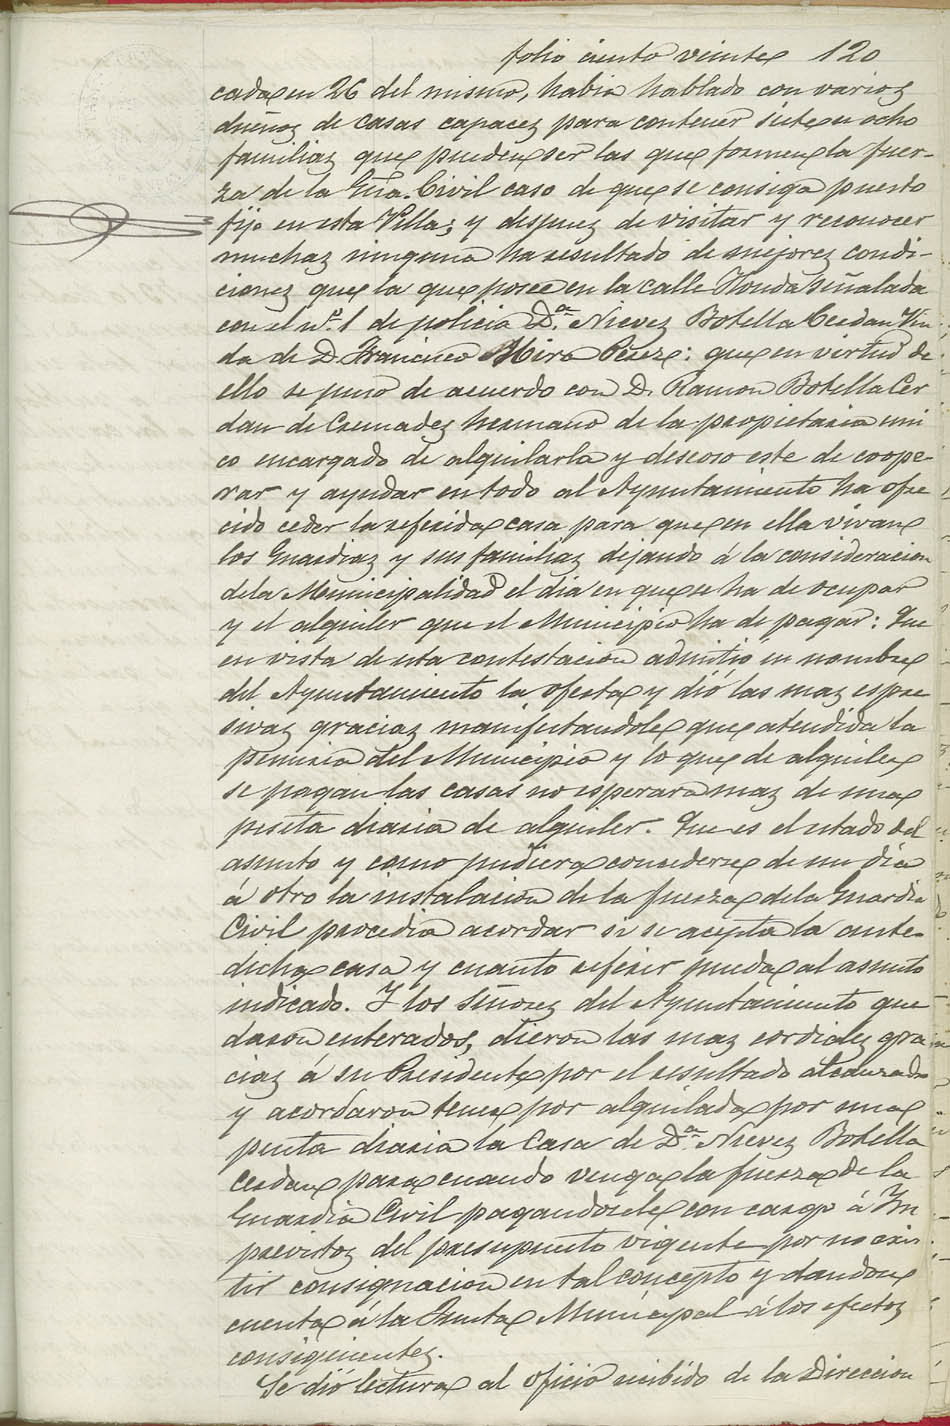 folio ciento veinte 120
cada en 26 del mismo, habia hablado con varios
dueños de casas capaces para contener siete u ocho
familias que pueden ser las que formen la fuer-
za de la Gia. Civil caso de que se consiga puesto
fijo en esta Villa; y despues de visitar y reconocer
muchas ninguna ha resultado de mejores condi-
ciones que la que posee en la calle Honda señalada
con el nº. 1 de policia Dª. Nieves Botella Cerdan Viu
da de D. Francisco Mira Perez: que en virtud de
ello se puso de acuerdo con D. Ramon Botella Cer
dan de Cremades hermano de la propietaria uni
co encargado de alquilarla y deseoso este de coope-
rar y ayudar en todo al Ayuntamiento ha ofre
cido ceder la referida casa para que en ella vivan
los Guardias y sus familias dejando á la consideracion
de la Municipalidad el dia en que se ha de ocupar
y el alquiler que el Municipio ha de pagar: Que
en vista de esta contestacion admitió en nombre
del Ayuntamiento la oferta y dió las mas espre
sivas gracias manifestandole que atendida la
penuria del Municipio y lo que de alquiler
se pagan las casas no esperara mas de una
peseta diaria de alquiler. Que es el estado del
asunto y como pudiera concederse de un dia
á otro la instalacion de la fuerza de la Guardia
Civil procedia acordar si se acepta la ante-
dicha casa y cuanto referir pueda al asunto
indicado. Y los Señores del Ayuntamiento que
daron enterados, dieron las mas cordiales gra
cias á su Presidente por el resultado alcanzado
y acordaron tener por alquilada por una
peseta diaria la Casa de Dª. Nieves Botella
Cerdan para cuando venga la fuerza de la
Guardia Civil pagandosele con cargo á Im
previstos del presupuesto vigente por no exis
tir consignacion en tal concepto y dandose
cuenta á la Junta Municipal á los efectos
consiguientes.
Se dió lectura al oficio recibido de la Direccion